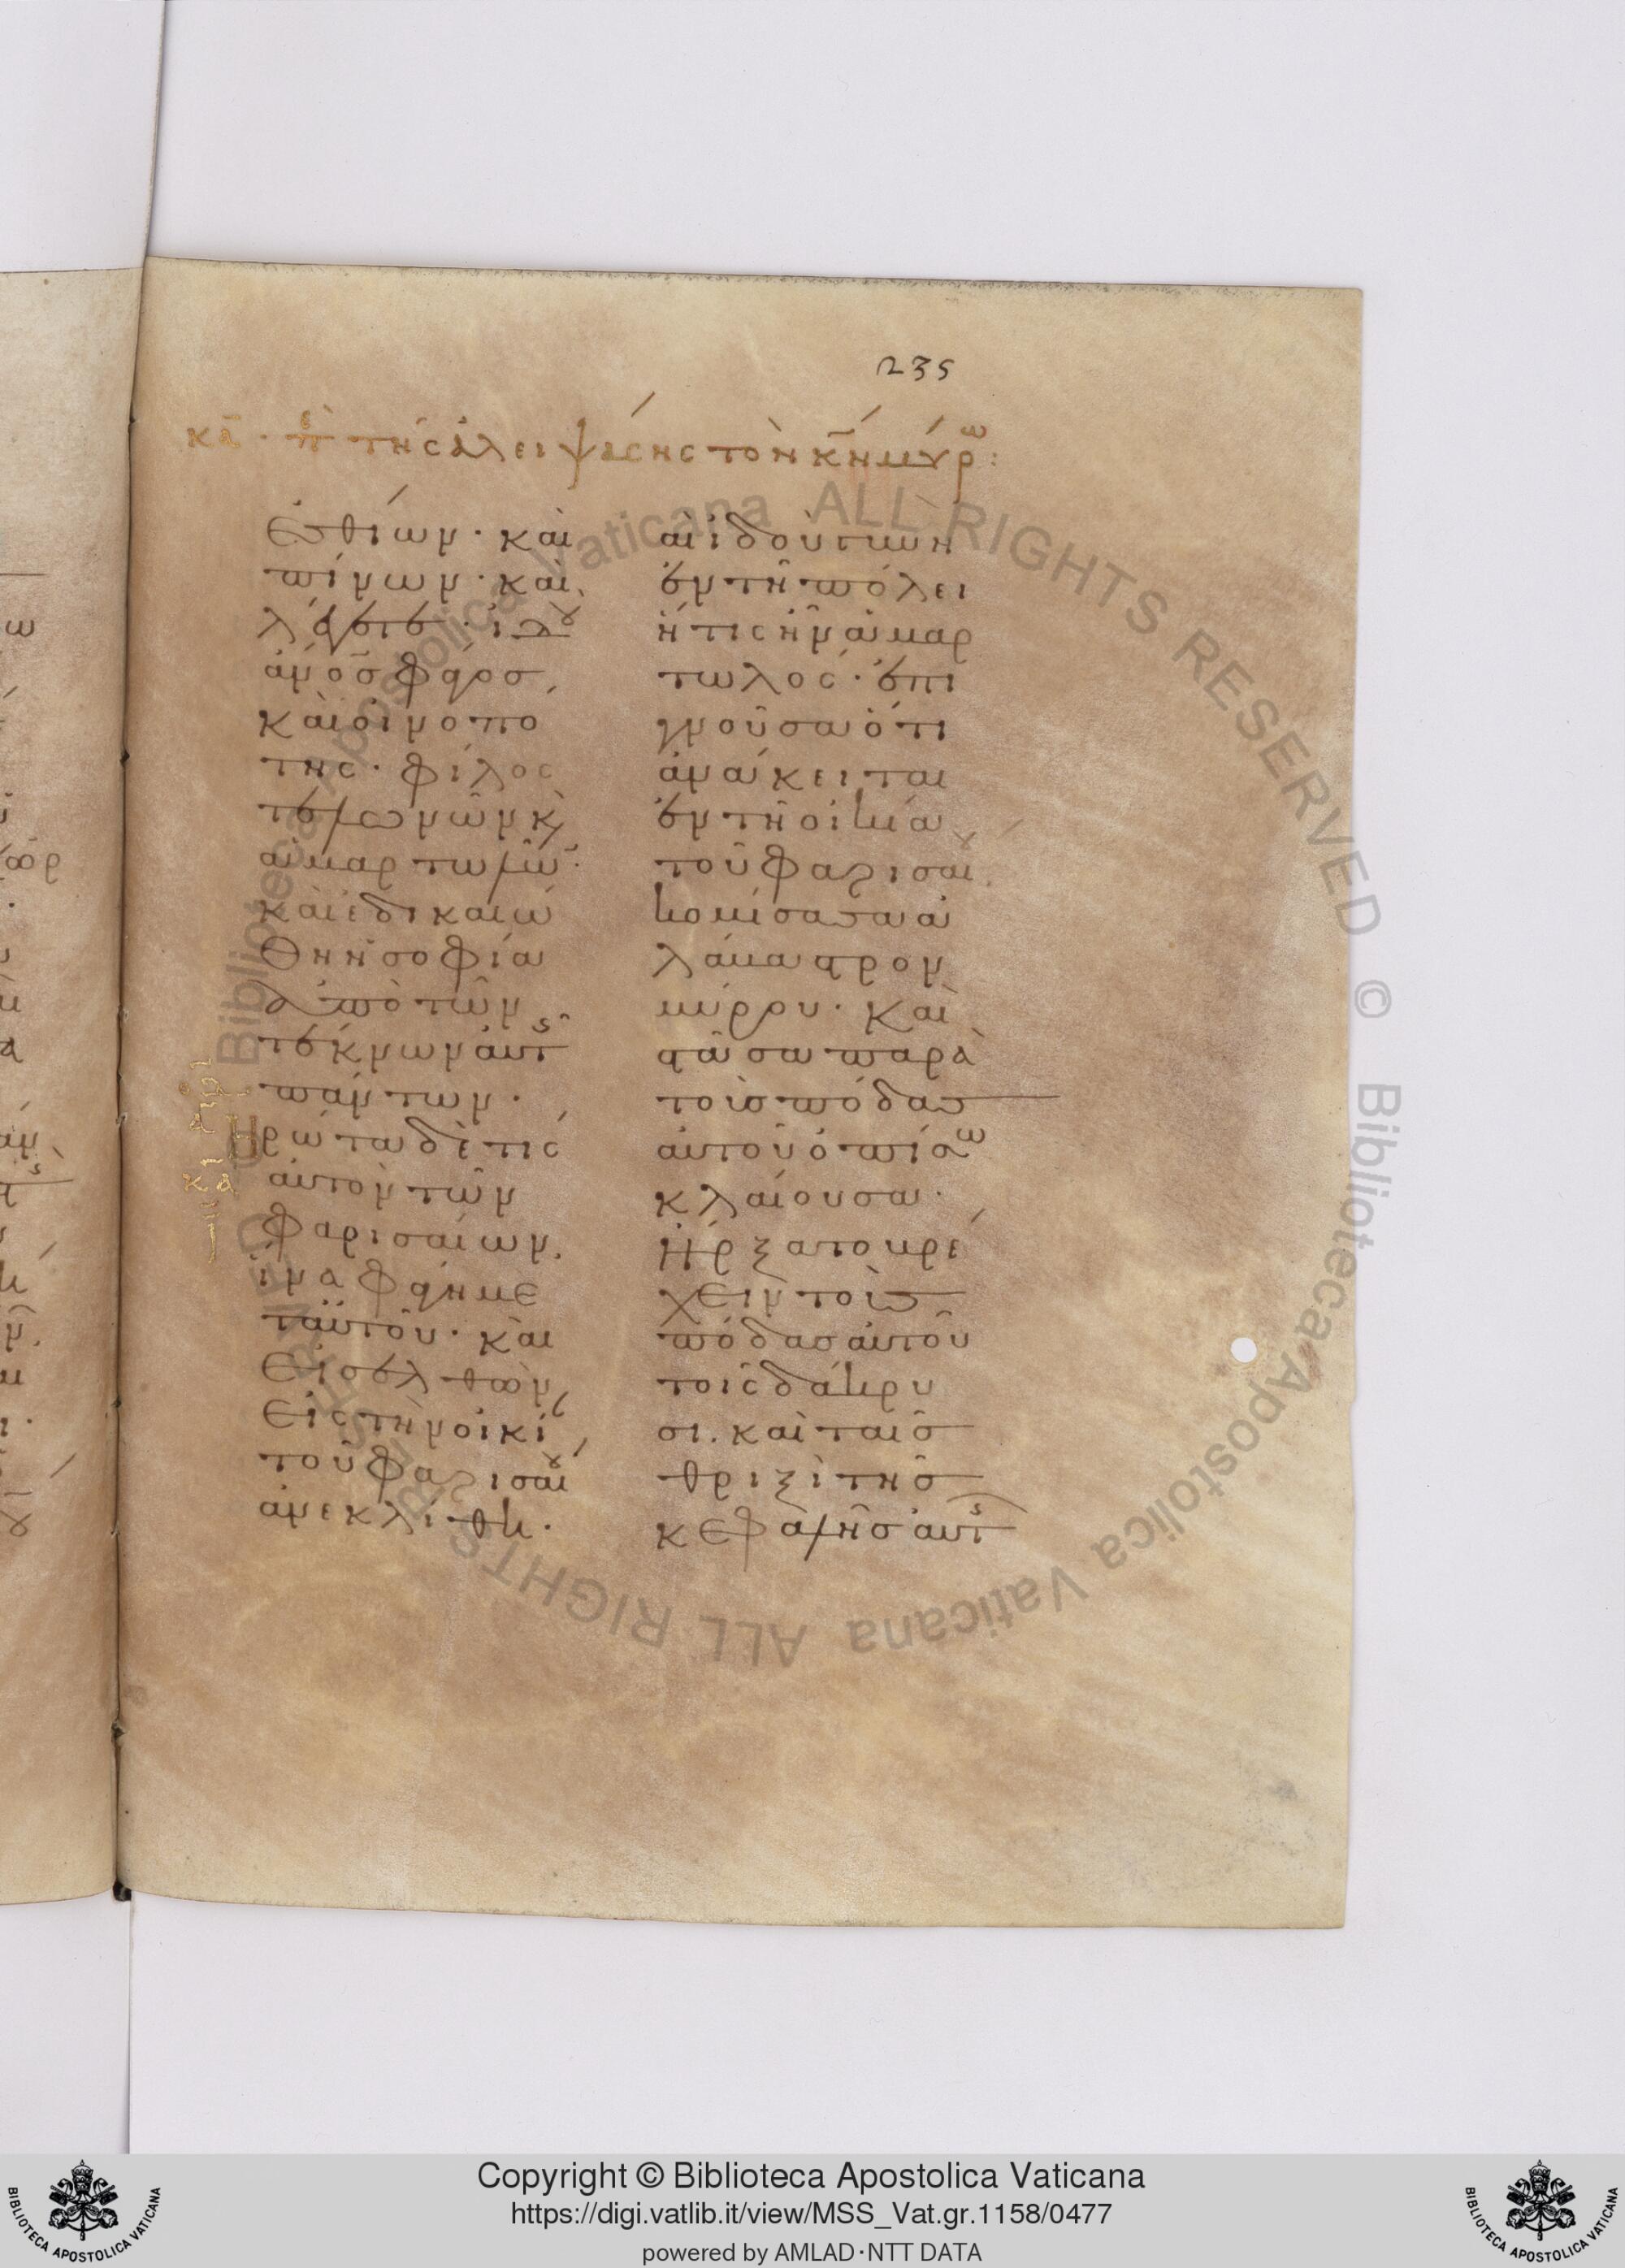 235
κα · πε τῆς ἀλειψάσης τὸν κ̅ν̅ μύρω:
ἐσθίων · καὶ
πίνων · καὶ
λέγετε · ἰδου
ἄνος φάγος
καὶ οἰνοπό
της · φίλος
τελωνῶν κ
ἁμαρτωλῶ ·
καὶ ἐδικαιώ
θη ἡ σοφία
ἀπὸ τῶν
τέκνων αὐτς
πάντων ·
Ἠρώτα δέ τις
αὐτὸν τῶν
φαρισαίων
ἵνα φάγη με
τ αὐτοῦ · καὶ
εἰσελθὼν
εἰς τὴν οἰκί
τοῦ φαρισαίου
ἀνεκλίθη ·
κα
αἱ ἰδοὺ γυνὴ
ἐν τῆ πόλει
ἥτις ἦν ἁμαρ
τωλός · ἐπι
γνοῦσα ὅτι
ἀνάκειται
ἐν τῆ οἰκία
τοῦ φαρισαίου
κομίσασα ἀ
λάβαστρον
μύρου · καὶ
στᾶσα παρὰ
τοὺς πόδας
αὐτοῦ ὀπίσω
κλαίουσα ·
ἤρξατο βρέ
χειν τοὺς
πόδας αὐτοῦ
τοῖς δάκρυ
σι · καὶ ταῖς
θριξὶ τῆς
κεφαλῆς αὐτς
Copyright © Biblioteca Apostolica Vaticana
https://digi.vatlib.it/view/MSS_Vat.gr.1158/0477
powered by AMLAD·NTT DATA
BIBLIOTECA APOSTOLICA VATICANA
BIBLIOTECA APOSTOLICA VATICANA
Biblioteca Apostolica Vaticana ALL RIGHTS RESERVED © Biblioteca Apostolica Vaticana ALL RIGHTS RESERVED ©